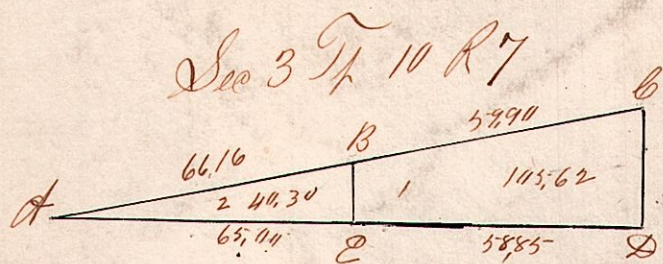 Sec 3 Tp 10 R 7
C
59,90
B
66,16
105,62
A
2 40,30
1
65,00
E
58,85
D